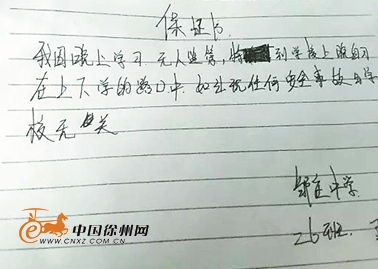 保证书
我因晚上学习无人监管,██到学校上晚自习
在上下学的路口中.如出现任何安全事故与学
校无关
郑集中学
26班.
中国徐州网
WWW.CNXZ.COM.CN